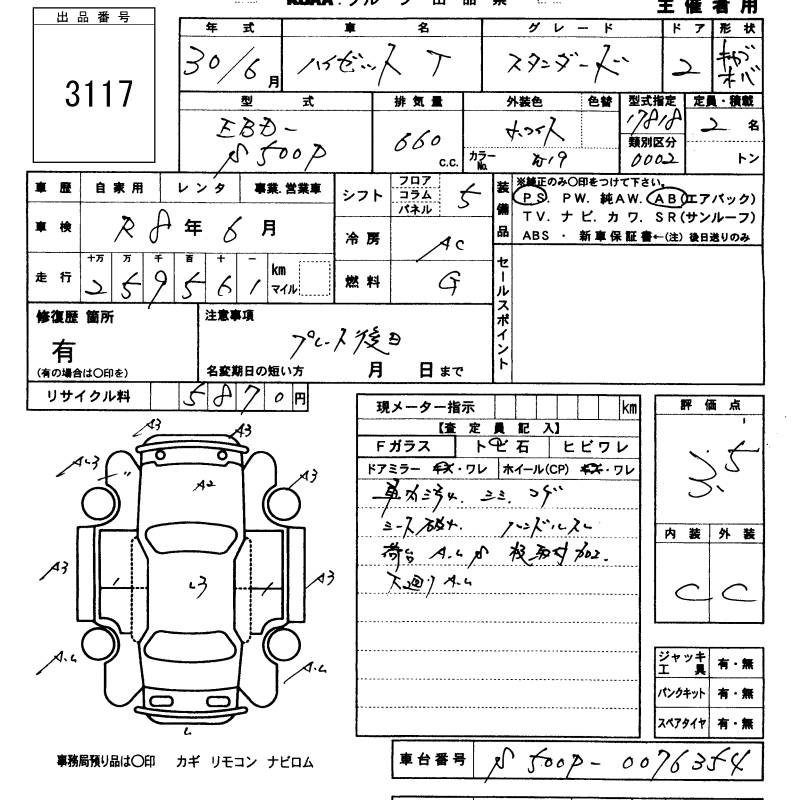 主催者用
出品番号
3117
年式 車名 グレード ドア 形状
30/6月 ハイゼットT スタンダード 2
型式 排気量 外装色 色替 型式指定 定員・積載
EBD-S500P 660 c.c. ホワイト 17818 2名
カラーNo. 類別区分 0002 トン
車歴 自家用 レンタ 事業.営業車
シフト フロア コラム パネル 5
装備品 ※純正のみ〇印をつけて下さい。
PS. PW. 純AW. AB(エアバック)
TV. ナビ. カワ. SR(サンルーフ)
ABS ・ 新車保証書←(注) 後日送りのみ
車検 R8年6月
冷房 AC
走行 十万 万 千 百 十 一
259561 km マイル
燃料 G
セールスポイント
修復歴 箇所
有
(有の場合は〇印を)
注意事項
プレート後日
名変期日の短い方 月 日まで
リサイクル料 5870円
現メーター指示 km
【査定員記入】
Fガラス トビ石 ヒビワレ
ドアミラー キズ・ワレ ホイール(CP) キズ・ワレ
車内汚れ. シミ. コゲ
シート破れ ハンドルスレ
荷台 A.L
下廻り A.L
評価点
3.5
内装 外装
C C
A3 A3
A2
A3
A3
L3
A3
L
ジャッキ工具 有・無
パンクキット 有・無
スペアタイヤ 有・無
事務局預り品は〇印 カギ リモコン ナビロム
車台番号 S500P-0076354